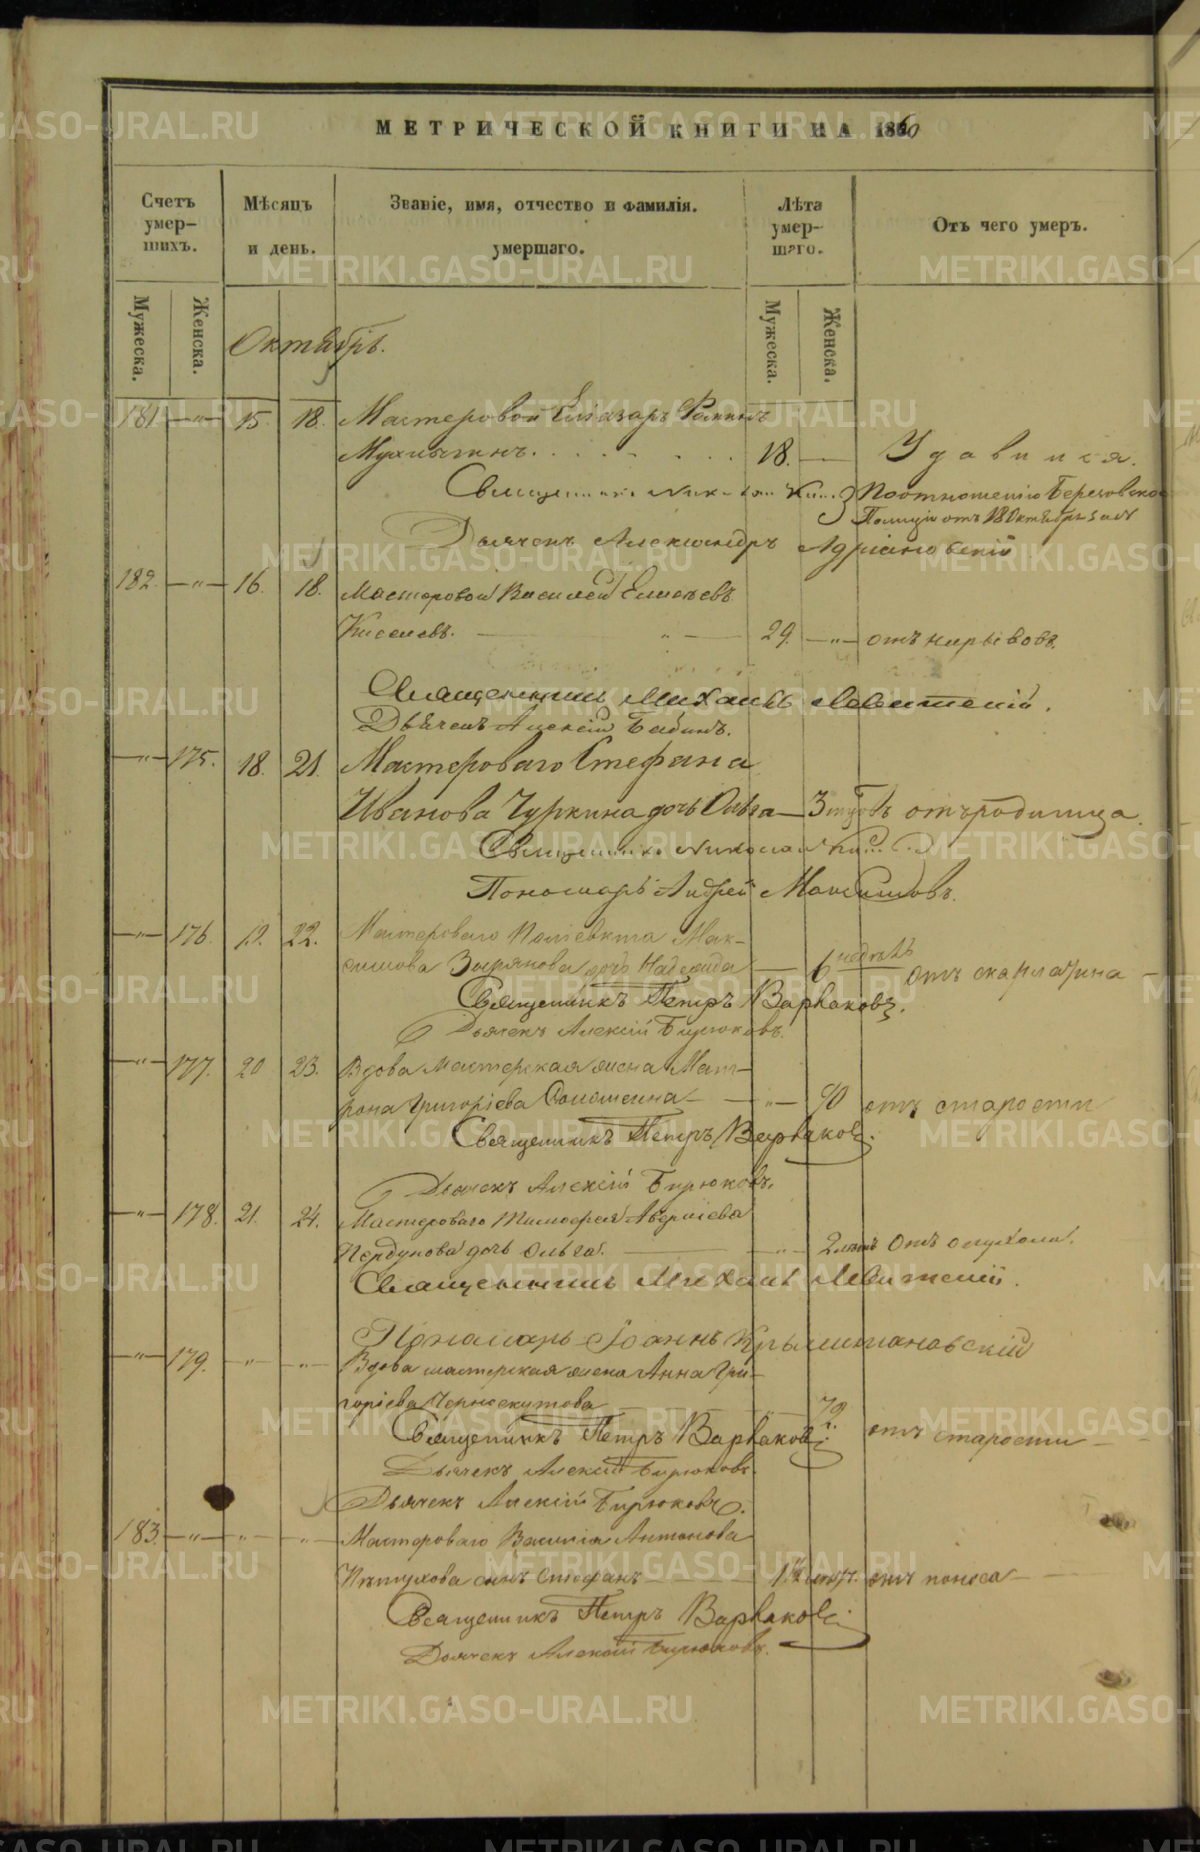 МЕТРИЧЕСКОЙ КНИГИ НА 1860
Счетъ умер-шихъ.
Мѣсяцъ и день.
Званіе, имя, отчество и фамилія. умершаго.
Лѣта умер-шаго.
Отъ чего умеръ.
Мужеска.
Женска.
Мужеска.
Женска.
Октябрь.
181 —"— 15. 18. Мастеровой Елiазаръ
18. — Удавился.
Священникъ По отношенію Березовской
Полиціи отъ 18 Октября за №
Дьячекъ Александръ Адріановскій
182. —"— 16. 18. Мастеровой Василей Елисѣевъ
Киселевъ. — " — 29. —"— отъ нарывовъ.
Священникъ Михаилъ Левитскій.
Дьячекъ Алексій Бабинъ.
—"— 175. 18. 21. Мастероваго Стефана
Иванова Чуркина дочь Ольга — отъ родимца.
Священникъ Николай
Пономарь Андрей Максимовъ.
—"— 176. 19. 22. Мастероваго Поліевкта Мак-
симова Зырянова дочь Надежда — 6 недѣль отъ скарлатина —
Священникъ Петръ Варваковъ.
Дьячекъ Алексій Бирюковъ.
—"— 177. 20 23. Вдова Мастерская жена Мат-
рона Григоріева — " — 90 отъ старости
Священникъ Петръ Варваковъ.
Дьячекъ Алексій Бирюковъ.
—"— 178. 21. 24. Мастероваго Тимофея Аверкіева
дочь Ольга. — " — 2 отъ опухоли.
Священникъ Михаилъ Левитскій.
Пономарь Іоаннъ
—"— 179. —"— —"— Вдова мастерская жена Анна Гри-
горіева Черноскутова — " 79. отъ старости —
Священникъ Петръ Варваковъ.
Дьячекъ Алексій Бирюковъ.
Дьячекъ Алексій Бирюковъ.
183. —"— —"— " Мастероваго Василія Антонова
Пѣтухова сынъ Стефанъ — отъ поноса —
Священникъ Петръ Варваковъ
Дьячекъ Алексій Бирюковъ.
METRIKI.GASO-URAL.RU